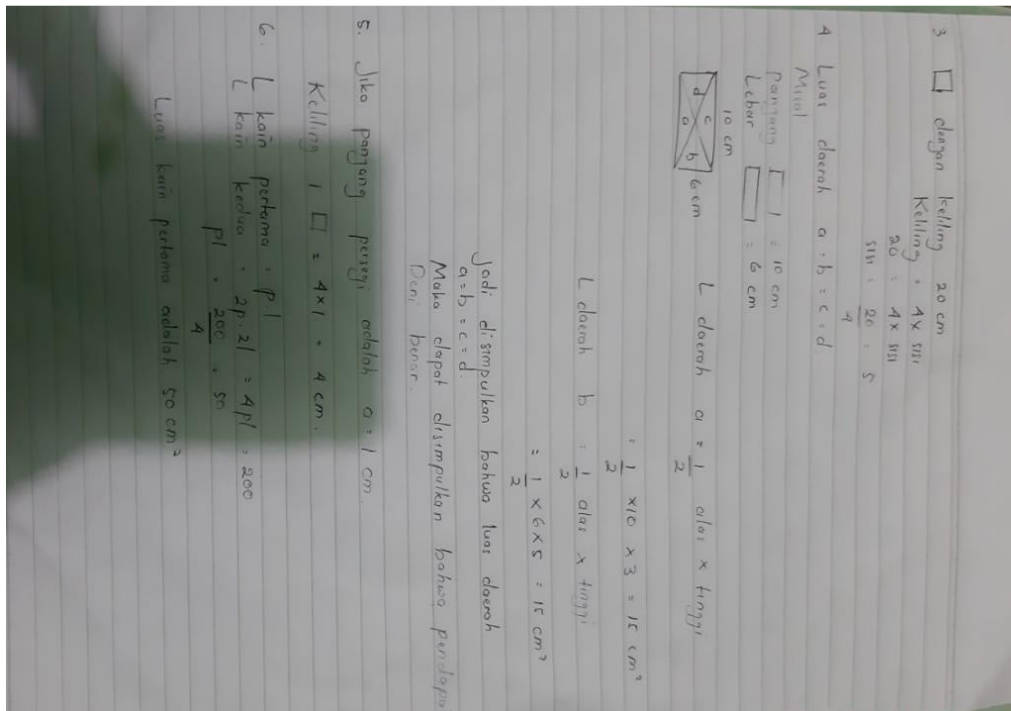 3 □ dengan keliling 20 cm
Keliling = 4 x sisi
20 = 4 x sisi
sisi = 20/4 = 5
4 Luas daerah a = b = c = d
Misal
Panjang □ = 10 cm
Lebar □ = 6 cm
10 cm
d c b a 6 cm
L daerah a = 1/2 alas x tinggi
= 1/2 x 10 x 3 = 15 cm²
L daerah b = 1/2 alas x tinggi
= 1/2 x 6 x 5 = 15 cm²
Jadi disimpulkan bahwa luas daerah
a = b = c = d.
Maka dapat disimpulkan bahwa
Deni benar.
5. Jika panjang persegi adalah a = 1 cm.
Keliling 1 □ = 4 x 1 = 4 cm.
6. L kain pertama = pl
L kain kedua = 2p . 2l = 4pl = 200
pl = 200/4 = 50
Luas kain pertama adalah 50 cm²